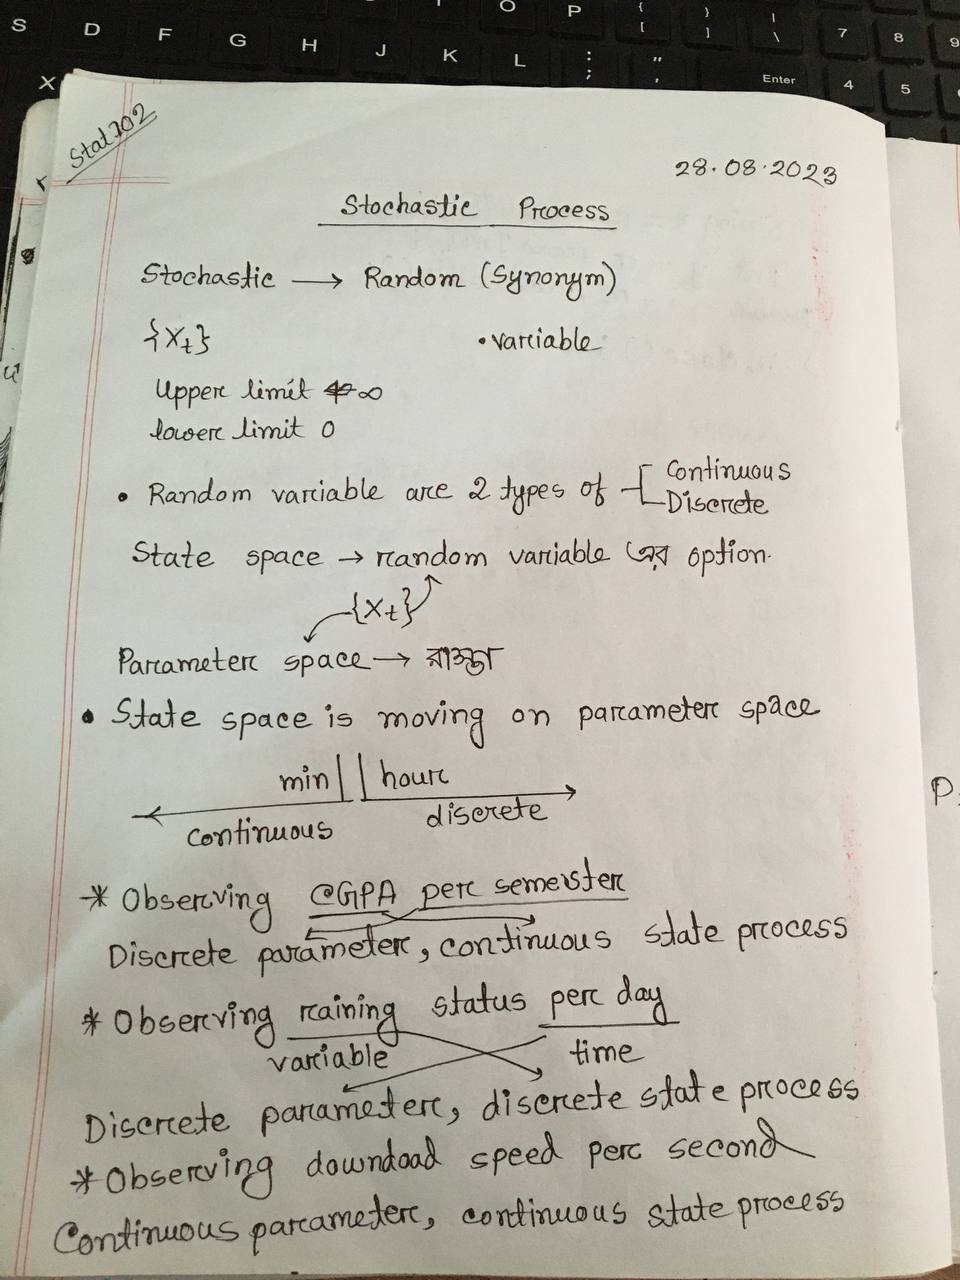 S D F G H J K L : ; " ' Enter 4 5
O P { [ } ] | \ 7 8 9
X
Stat 202
28.08.2023
Stochastic Process
Stochastic → Random (Synonym)
{Xt} • variable
Upper limit ∞
lower limit 0
• Random variable are 2 types of Continuous
Discrete
State space → random variable এর option.
{Xt}
Parameter space → রাস্তা
• State space is moving on parameter space
min || hour
continuous discrete
* Observing CGPA per semester
Discrete parameter, continuous state process
* Observing raining status per day
variable time
Discrete parameter, discrete state process
* Observing download speed per second
Continuous parameter, continuous state process